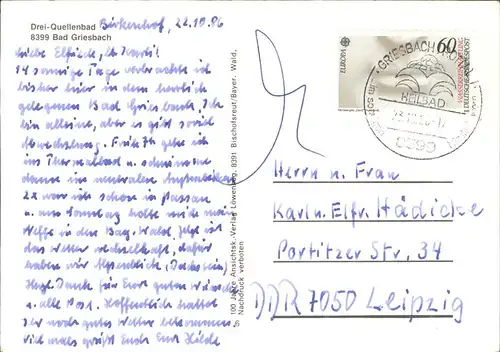 Drei-Quellenbad
8399 Bad Griesbach
Birkenhof, 22.10.86
Liebe Elfriede, lb. Karli!
14 sonnige Tage verbrachte ich
bisher hier in dem herrlich
gelegenen Bad Griesbach. Ich
bin alleine, aber es gibt soviel
Abwechslung. Früh gehe ich
ins Thermalbad u. schwimme
dann im
2x war ich schon in Passau
u. am Sonntag holte mich mein
Neffe in den Bay. Wald. Jetzt ist
das Wetter wechselhaft, dafür
haben wir Alpenblick (Dachstein)
Herzl. Dank für Eure guten Wünsche
u. alle Post. Hoffentlich hattet
Ihr noch gutes Wetter bekommen.
Viel mals grüßt Euch Eure Hilde
100 Jahre Ansichtsk.-Verlag Löwenberg, 8391 Bischofsreut/Bayer. Wald.
Nachdruck verboten
EUROPA CEPT
60
DEUTSCHE BUNDESPOST
GRIESBACH
HEILBAD
8399
Herrn u. Frau
Karl u. Elfr. Hädicke
Portitzer Str. 34
DDR 7050 Leipzig